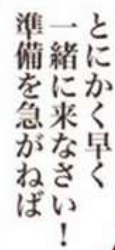 とにかく早く
一緒に来なさい！
準備を急がねば